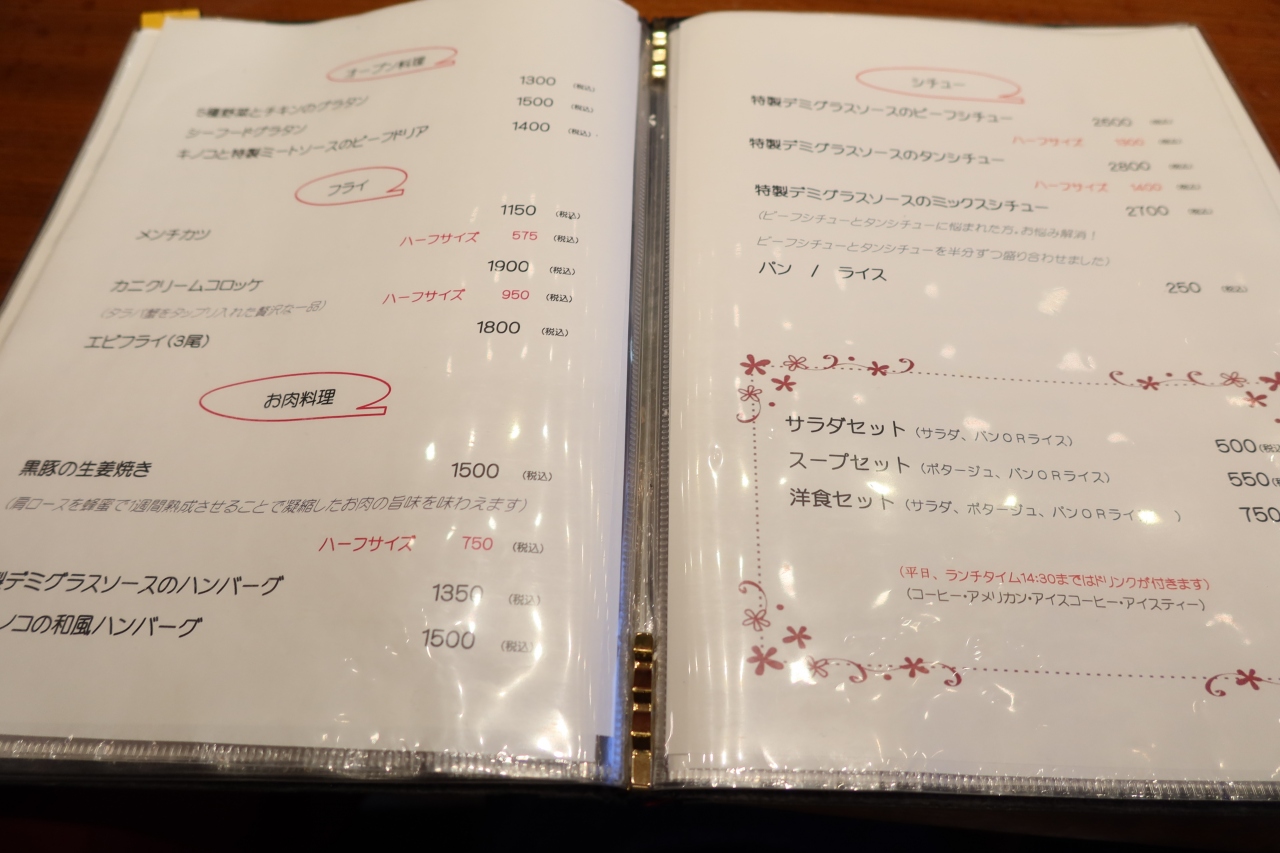 オーブン料理
5種野菜とチキンのグラタン 1300 (税込)
シーフードグラタン 1500 (税込)
キノコと特製ミートソースのビーフドリア 1400 (税込)
フライ
メンチカツ 1150 (税込)
ハーフサイズ 575 (税込)
カニクリームコロッケ 1900 (税込)
(タラバ蟹をタップリ入れた贅沢な一品) ハーフサイズ 950 (税込)
エビフライ(3尾) 1800 (税込)
お肉料理
黒豚の生姜焼き 1500 (税込)
(肩ロースを蜂蜜で1週間熟成させることで凝縮したお肉の旨味を味わえます)
ハーフサイズ 750 (税込)
デミグラスソースのハンバーグ 1350 (税込)
ノコの和風ハンバーグ 1500 (税込)
シチュー
特製デミグラスソースのビーフシチュー (税込)
ハーフサイズ (税込)
特製デミグラスソースのタンシチュー 2800 (税込)
ハーフサイズ 1400 (税込)
特製デミグラスソースのミックスシチュー 2700 (税込)
(ビーフシチューとタンシチューに悩まれた方、お悩み解消!
ビーフシチューとタンシチューを半分ずつ盛り合わせました)
パン / ライス 250 (税込)
サラダセット (サラダ、パンORライス) 500 (税込
スープセット (ポタージュ、パンORライス) 550
洋食セット (サラダ、ポタージュ、パンORライ ) 750
(平日、ランチタイム14:30まではドリンクが付きます)
(コーヒー・アメリカン・アイスコーヒー・アイスティー)